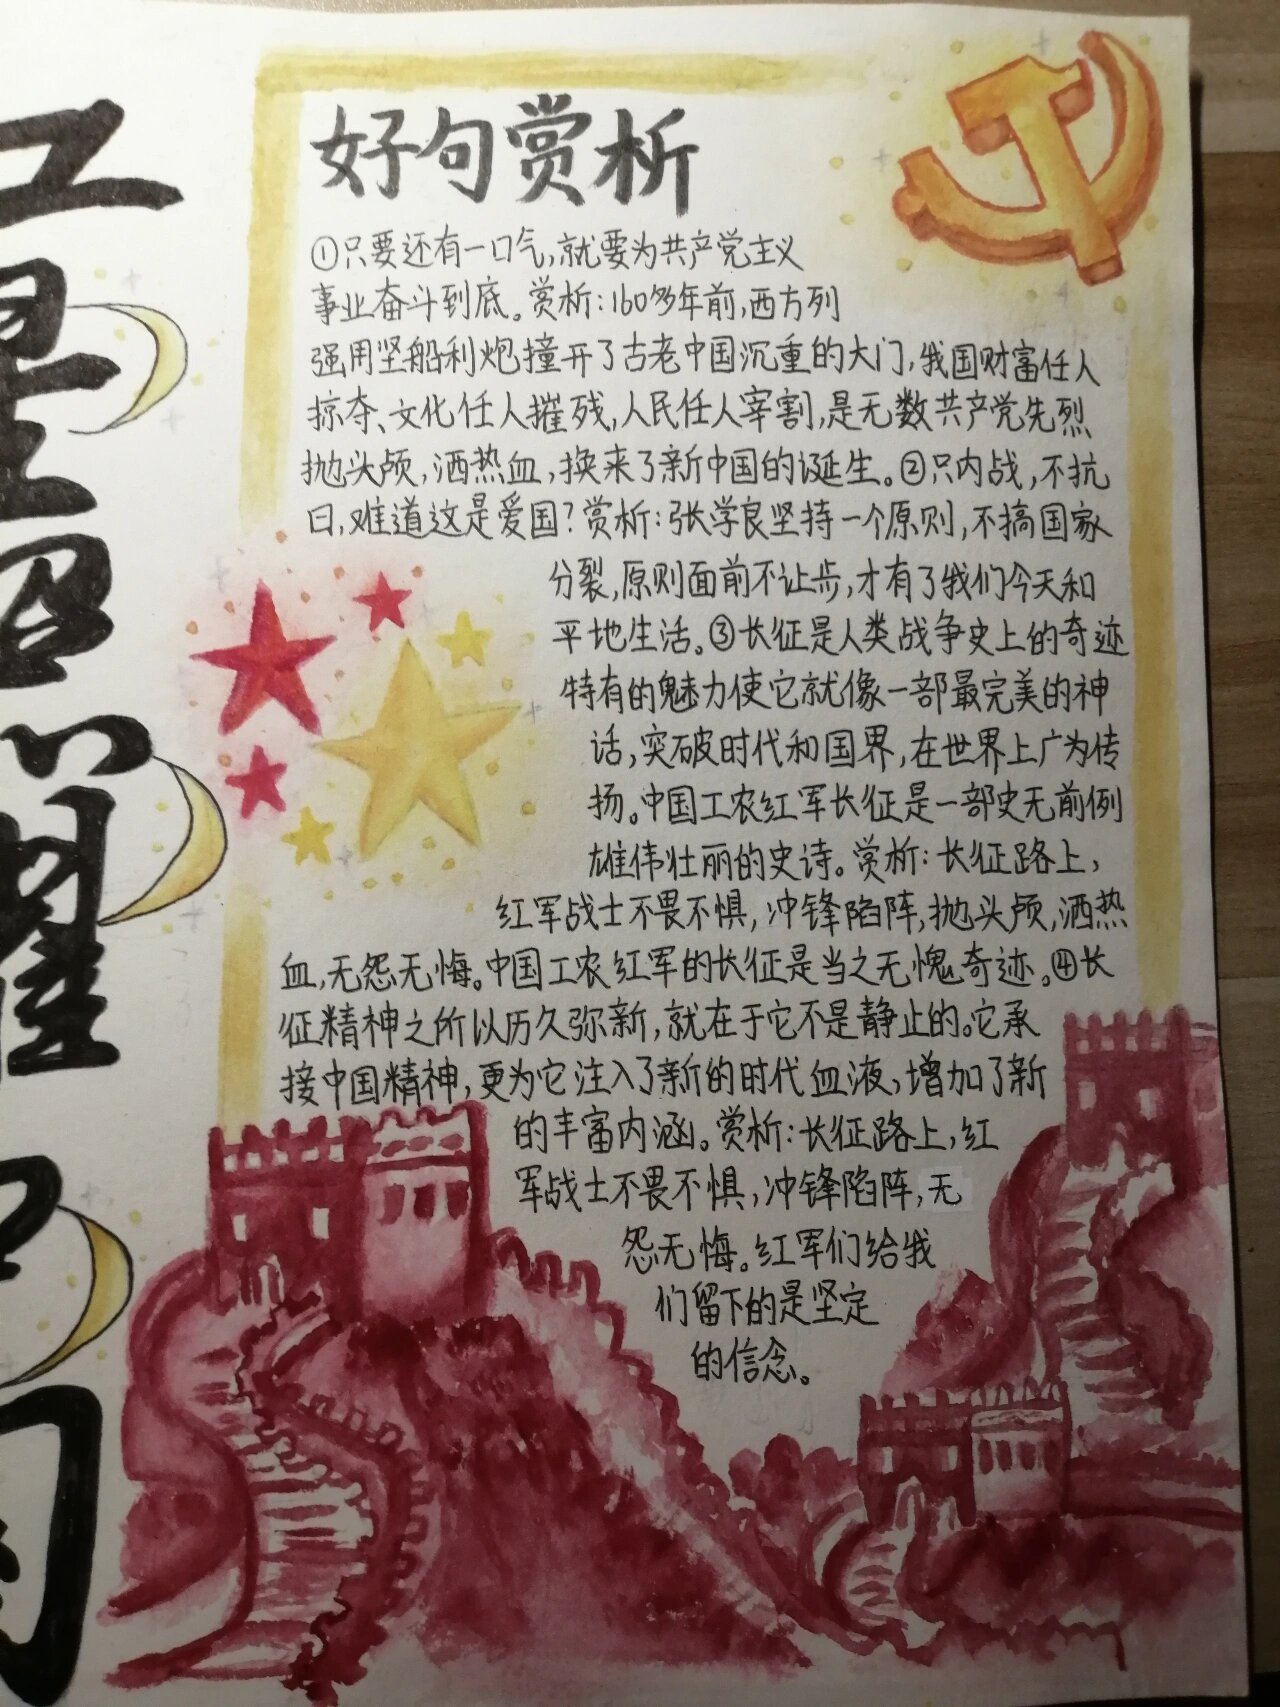 好句赏析
①只要还有一口气,就要为共产党主义
事业奋斗到底。赏析:160多年前,西方列
强用坚船利炮撞开了古老中国沉重的大门,我国财富任人
掠夺、文化任人摧残,人民任人宰割,是无数共产党先烈
抛头颅,洒热血,换来了新中国的诞生。②只内战,不抗
日,难道这是爱国?赏析:张学良坚持一个原则,不搞国家
分裂,原则面前不让步,才有了我们今天和
平地生活。③长征是人类战争史上的奇迹
特有的魅力使它就像一部最完美的神
话,突破时代和国界,在世界上广为传
扬。中国工农红军长征是一部史无前例
雄伟壮丽的史诗。赏析:长征路上,
红军战士不畏不惧,冲锋陷阵,抛头颅,洒热
血,无怨无悔。中国工农红军的长征是当之无愧奇迹。④长
征精神之所以历久弥新,就在于它不是静止的。它承
接中国精神,更为它注入了新的时代血液,增加了新
的丰富内涵。赏析:长征路上,红
军战士不畏不惧,冲锋陷阵,无
怨无悔。红军们给我
们留下的是坚定
的信念。